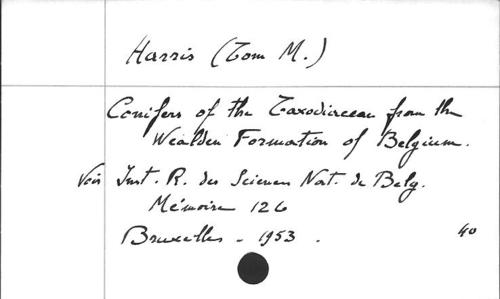 Harris (Tom M.)
Conifers of the Taxodiaceae from the
Wealden Formation of Belgium.
Voir Inst. R. des Sciences Nat. de Belg.
Mémoire 126
Bruxelles - 1953. 40